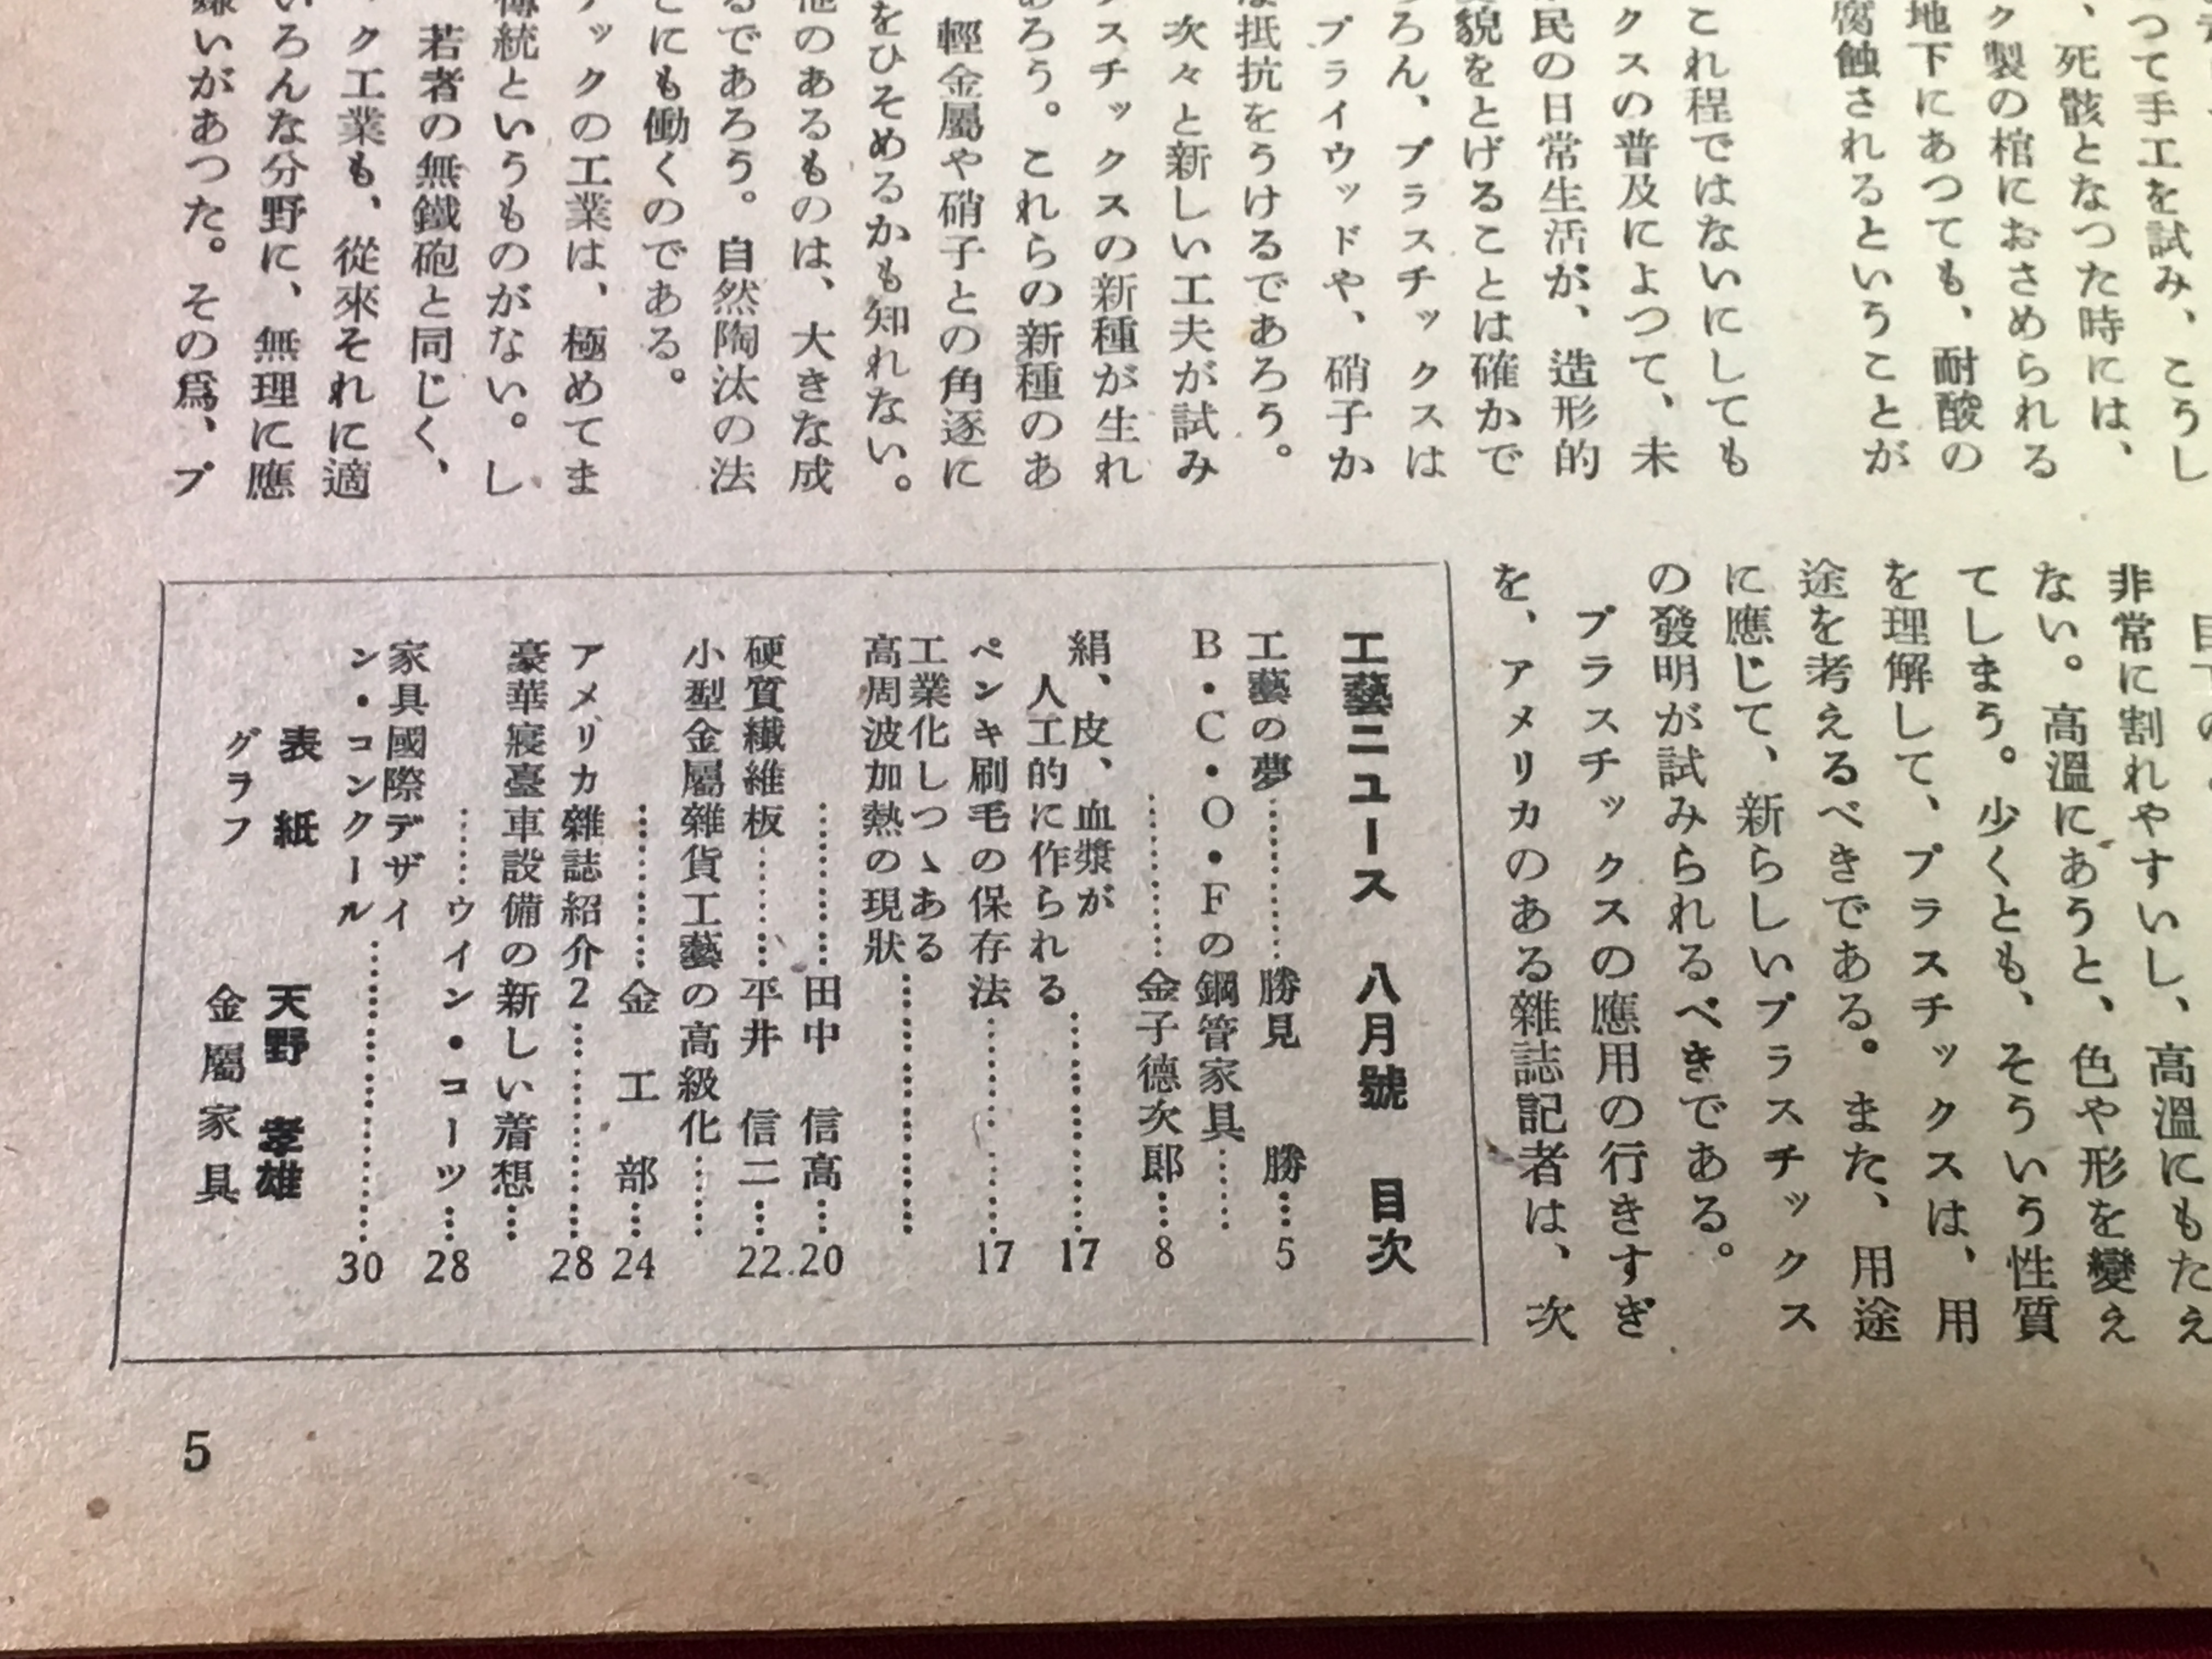 つて手工を試み、こうし
、死骸となつた時には、
ク製の棺におさめられる
地下にあつても、耐酸の
腐蝕されるということが
これ程ではないにしても
クスの普及によつて、未
民の日常生活が、造形的
貌をとげることは確かで
ろん、プラスチックスは
プライウッドや、硝子か
抵抗をうけるであろう。
次々と新しい工夫が試み
スチックスの新種が生れ
ろう。これらの新種のあ
輕金屬や硝子との角逐に
をひそめるかも知れない。
他のあるものは、大きな成
るであろう。自然陶汰の法
にも働くのである。
ックの工業は、極めてま
傳統というものがない。し
若者の無鐵砲と同じく、
ック工業も、從來それに適
いろんな分野に、無理に應
嫌いがあつた。その爲、プ
非常に割れやすいし、高溫にもたえ
ない。高溫にあうと、色や形を變え
てしまう。少くとも、そういう性質
を理解して、プラスチックスは、用
途を考えるべきである。また、用途
に應じて、新らしいプラスチックス
の發明が試みられるべきである。
プラスチックスの應用の行きすぎ
を、アメリカのある雜誌記者は、次
工藝ニュース 八月號 目次
工藝の夢……勝見 勝…5
B・C・O・Fの鋼管家具……
……金子德次郎…8
絹、皮、血漿が
人工的に作られる……17
ペンキ刷毛の保存法……17
工業化しつゝある
高周波加熱の現狀……
……田中 信高…20
硬質纖維板……平井 信二…22
小型金屬雜貨工藝の高級化……
……金 工 部…24
アメリカ雜誌紹介2……28
豪華寢臺車設備の新しい着想…
……ウイン・コーツ…28
家具國際デザイ
ン・コンクール……30
表 紙 天野 孝雄
グラフ 金屬家具
5